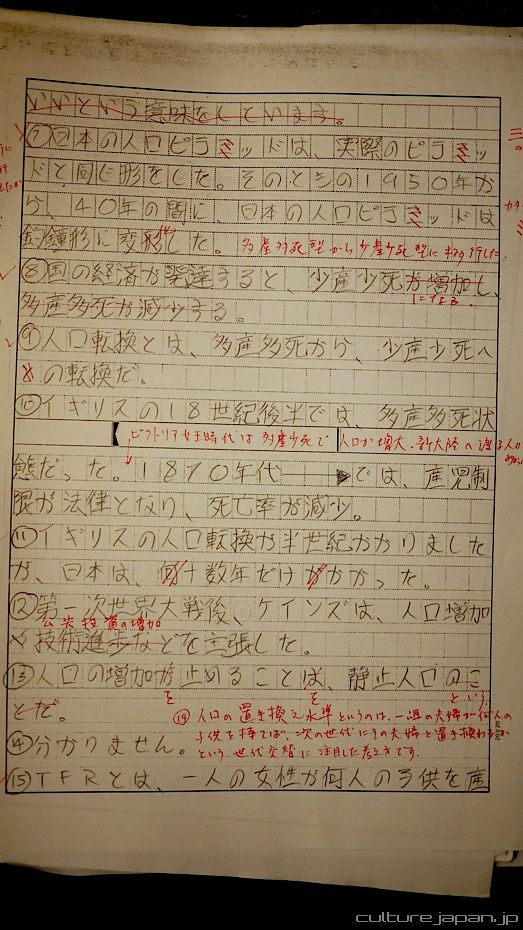 いいという意味をしています。
⑦日本の人口ピラミッドは、実際のピラミッ
ドと同じ形をした。そのときの1950年か
ら、40年の間に、日本の人口ピラミッドは
釣鐘形に変形した。多産多死型から少産少死型に移行した。
⑧国の経済が発達すると、少産少死が増加し、
になる。
多産多死が減少する。
⑨人口転換とは、多産多死から、少産少死へ
との転換だ。
⑩イギリスの18世紀後半では、多産多死状
ビクトリア女王時代は多産少死で 人口が増大.新大陸へ渡る人口
態だった。1870年代 では、産児制
限が法律となり、死亡率が減少。
⑪イギリスの人口転換が半世紀かかりました
が、日本は、何十数年だけがかかった。
⑫第一次世界大戦後、ケインズは、人口増加
公共投資の増加
や技術進歩などを主張した。
⑬人口の増加が止めることは、静止人口のこ
を を という
とだ。
⑭人口の置き換え水準というのは、一組の夫婦が何人の
子供を持てば、次の世代にその夫婦と置き換わるか
⑭分かりません。
という世代交替に注目した考え方です。
⑮TFRとは、一人の女性が何人の子供を産
culturejapan.jp